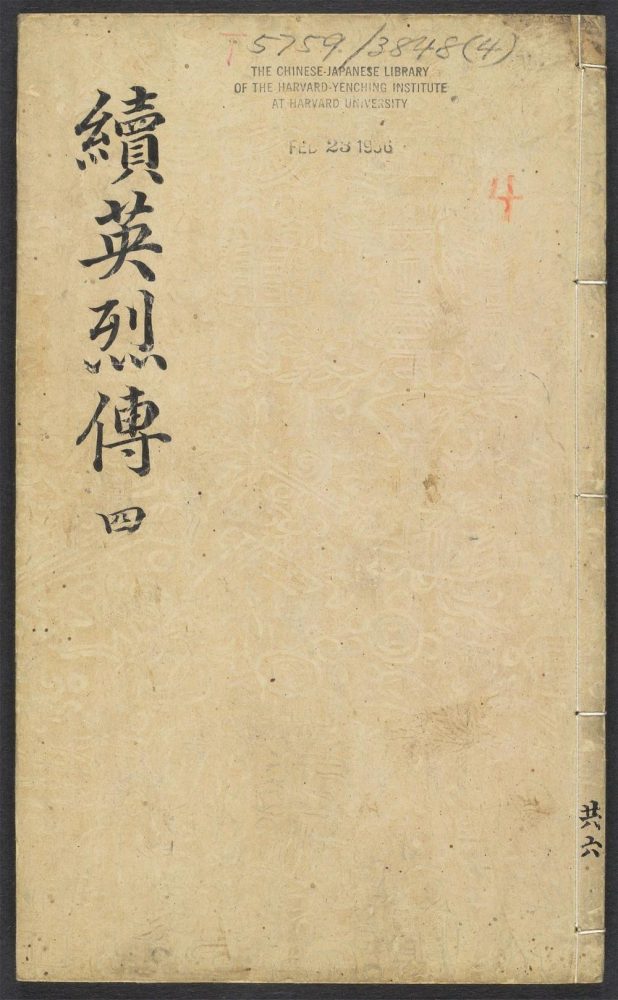 T 5759/3848(4)
THE CHINESE-JAPANESE LIBRARY
OF THE HARVARD-YENCHING INSTITUTE
AT HARVARD UNIVERSITY
FEB 23 1936
4
續英烈傳 四
共六